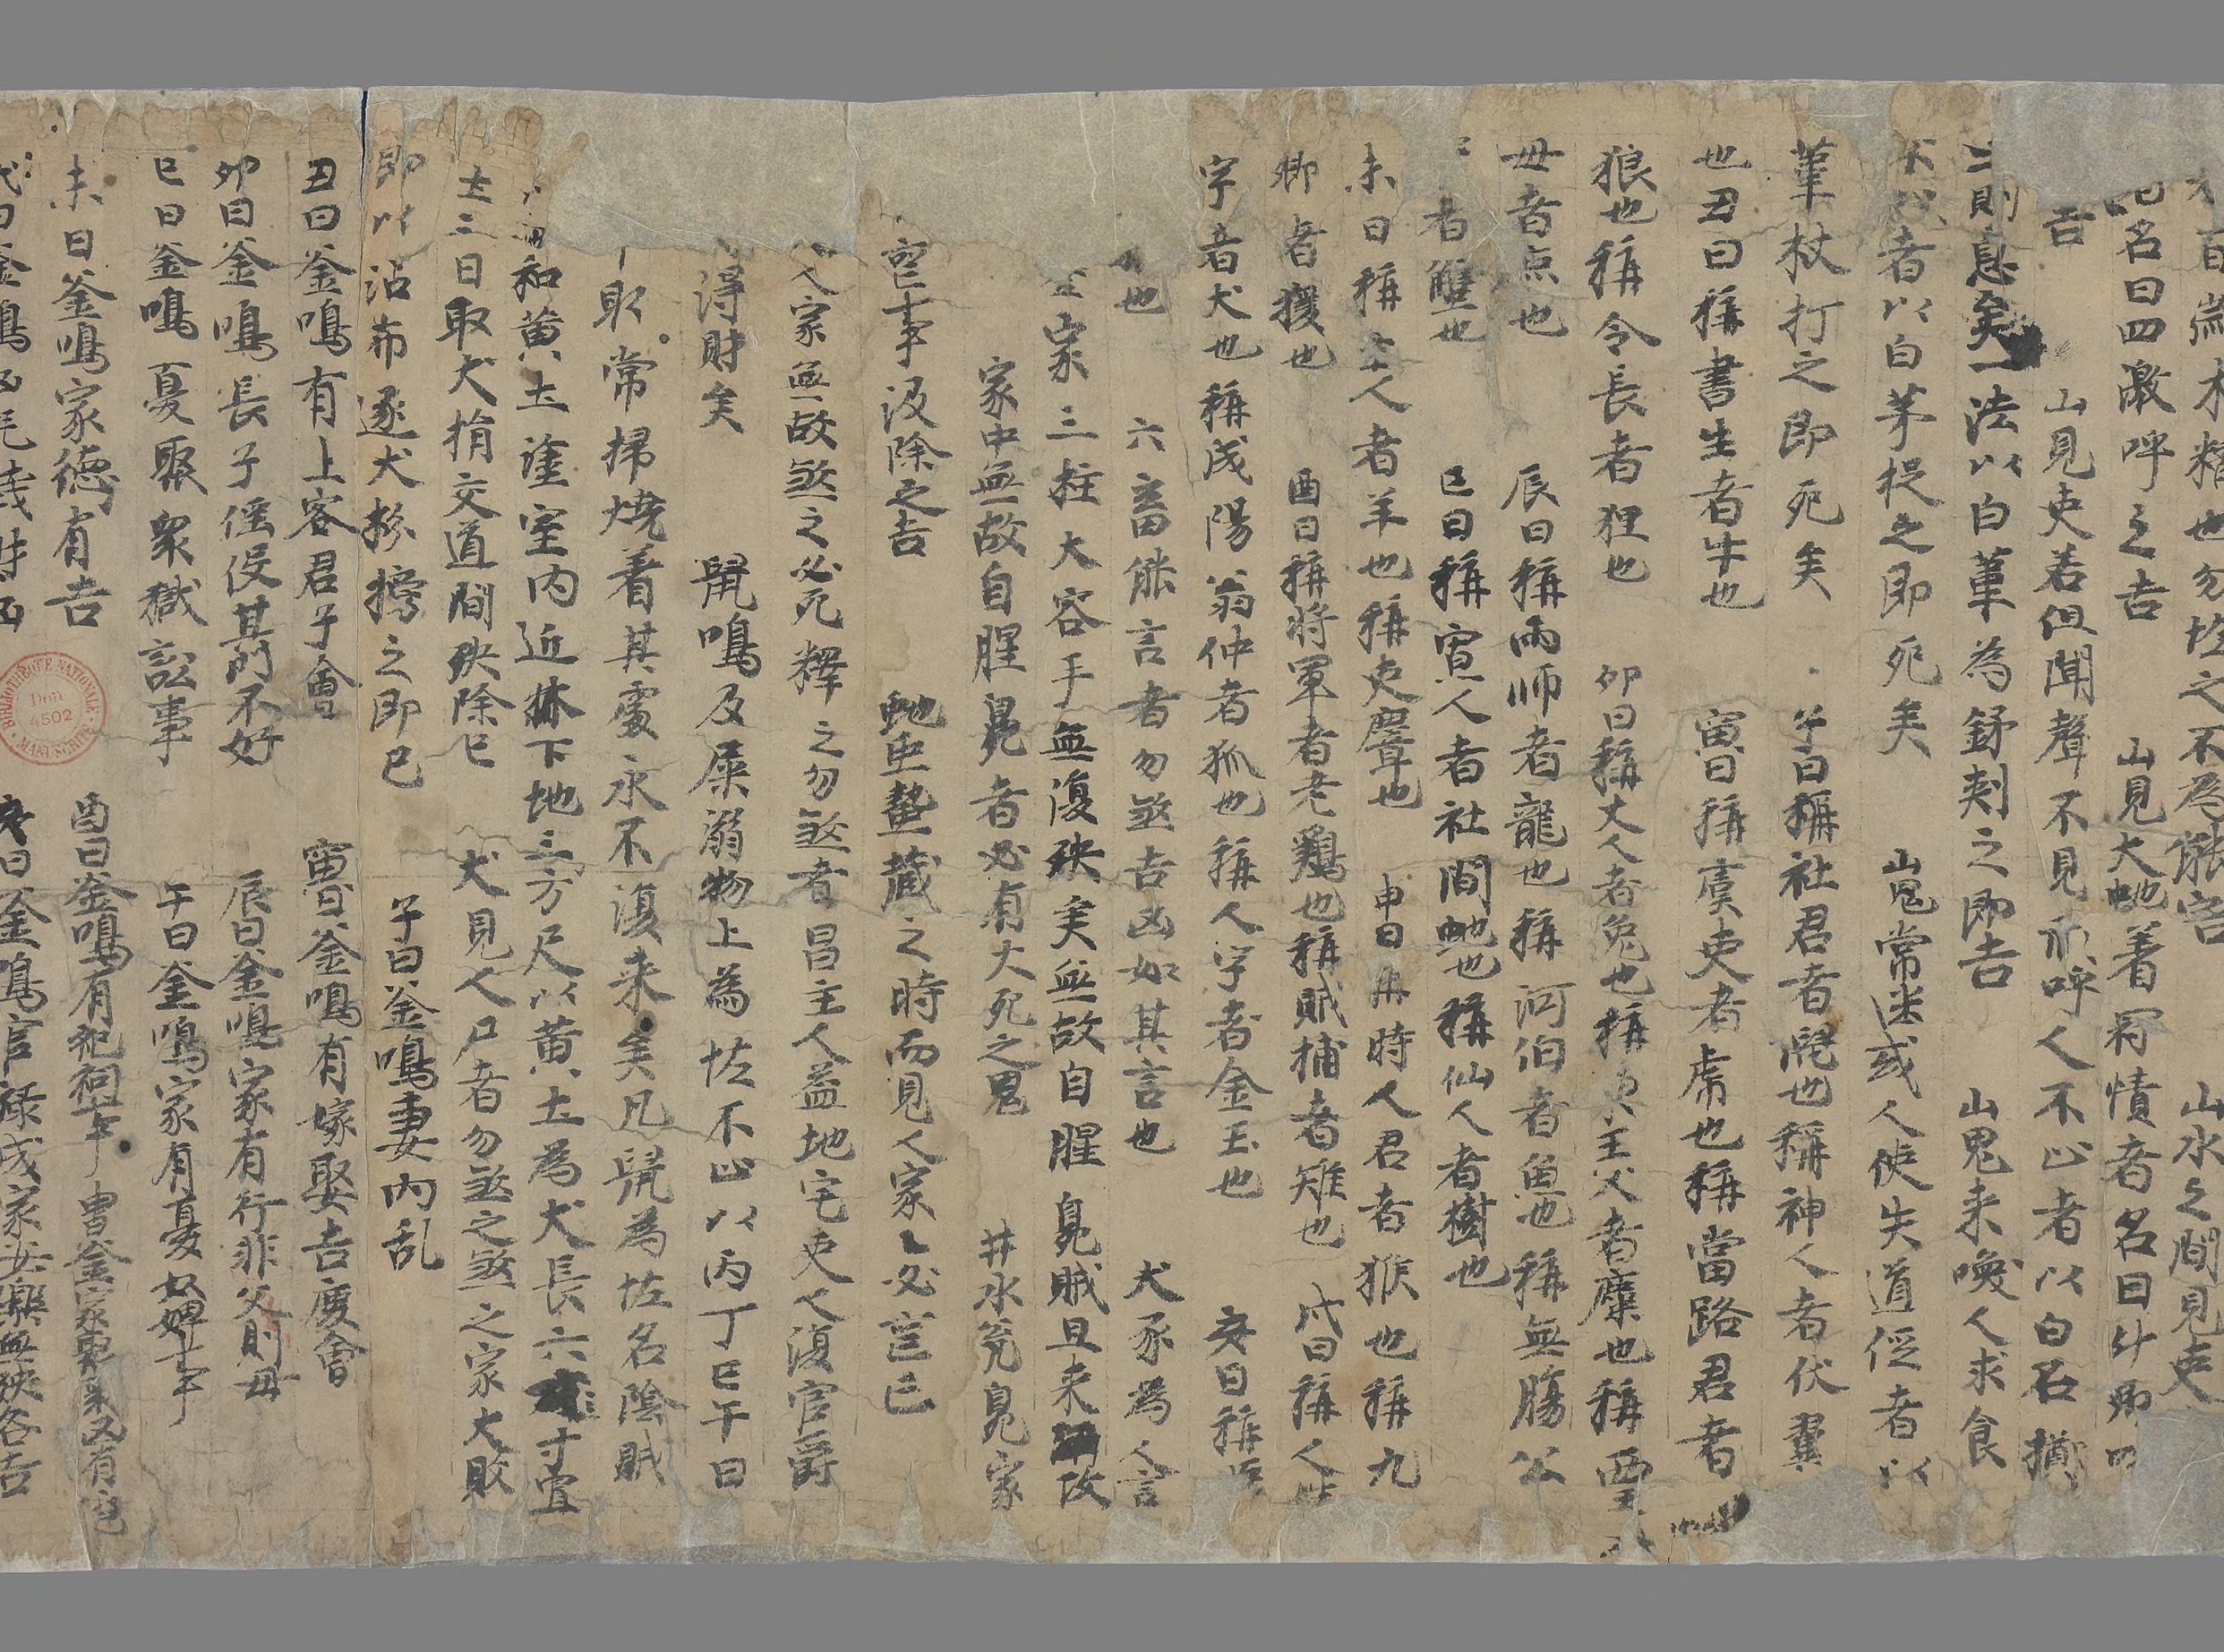 百歲木精也勿怪之不為能害 山水之間見吏
名曰四激呼之吉 山見大虵着冠幘者名曰升卿
吉 山見吏若但聞聲不見形呼人不止者以白石擲
之則息矣一法以白葦為鉾刺之即吉 山鬼来喚人求食
者以白茅投之即死矣 山鬼常迷或人使失道徑者以
葦杖打之即死矣 子日稱社君者鼠也稱神人者伏翼
也丑日稱書生者牛也 寅日稱虞吏者虎也稱當路君者
狼也稱令長者狸也 卯日稱丈人者兔也稱東王父者麋也稱西王
母者点也 辰日稱雨師者龍也稱河伯者魚也稱無腸公
者蟹也 巳日稱寡人者社間虵也稱仙人者樹也
未日稱主人者羊也稱吏麞也 申日稱時人君者猴也稱九
卿者猨也 酉日稱將軍者老鷄也稱賊捕者雉也 戌日稱人
字者犬也稱成陽翁仲者狐也稱人字者金玉也 亥日稱
也 六畜能言者勿煞吉凶如其言也 犬豕為人言
家三柱大容手無復殃矣無故自腥臭賊且来改
家中無故自腥臭者必有大死之鬼 井水瓮臭家
事汲除之吉 虵虫蟄藏之時而見人家必言已
人家無故煞之必死釋之勿煞者昌主人益地宅吏人復官爵
得財矣 鼠鳴及屎溺物上為怪不止以丙丁巳午日
取常掃燒着其處永不復来矣凡鼠為怪名陰賊
和黄土塗室内近牀下地三方尺以黄土為犬長六寸置
土三日取犬捐交道間殃除已 犬見人尸者勿煞之煞之家大敗
即以沾布逐犬於擣之即已 子日釜鳴妻内乱
丑日釜鳴有上客君子會 寅日釜鳴有嫁娶吉慶會
卯日釜鳴長子徭役其門不好 辰日釜鳴家有行非父則母
巳日釜鳴憂聚衆獄訟事 午日釜鳴家有憂奴婢事
未日釜鳴家德有吉 酉日釜鳴有祀祠事
戌日釜鳴 亥日釜鳴官祿成家安樂無殃各吉
BIBLIOTHEQUE NATIONALE
Don
4502
MANUSCRITS